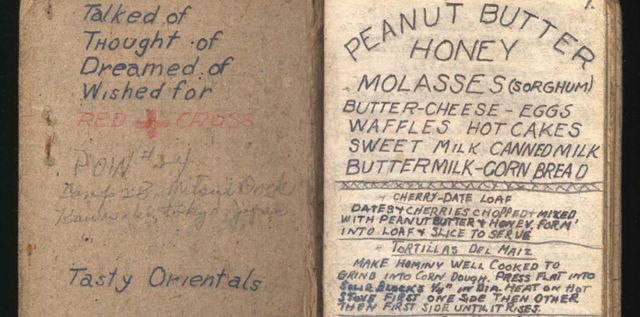 Talked of
Thought of
Dreamed of
Wished for
RED CROSS
POW # 24
Camp 2B - Mitsui Dock
Kawasaki, Tokyo, Japan
Tasty Orientals
1.
PEANUT BUTTER
HONEY
MOLASSES (SORGHUM)
BUTTER-CHEESE - EGGS
WAFFLES HOT CAKES
SWEET MILK CANNED MILK
BUTTERMILK-CORN BREAD
CHERRY-DATE LOAF
DATES & CHERRIES CHOPPED & MIXED
WITH PEANUT BUTTER & HONEY. FORM
INTO LOAF & SLICE TO SERVE
TORTILLAS DEL MAIZ
MAKE HOMINY WELL COOKED TO
GRIND INTO CORN DOUGH. PRESS FLAT INTO
SOLID BLOCKS 1/4" IN DIA. HEAT ON HOT
STOVE FIRST ONE SIDE THEN OTHER
THEN FIRST SIDE UNTIL IT RISES.